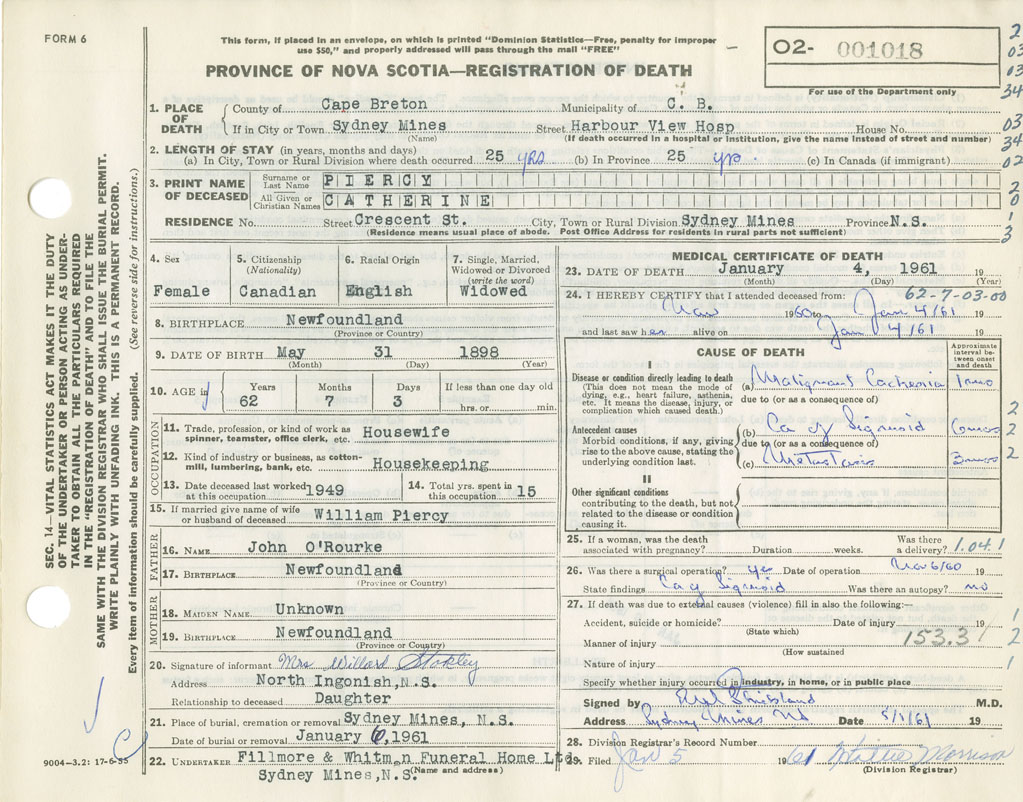 FORM 6
This form, if placed in an envelope, on which is printed "Dominion Statistics—Free, penalty for improper
use $50," and properly addressed will pass through the mail "FREE"
O2- 001018
For use of the Department only
PROVINCE OF NOVA SCOTIA—REGISTRATION OF DEATH
1. PLACE OF DEATH { County of Cape Breton Municipality of C. B.
If in City or Town Sydney Mines Street Harbour View Hosp House No.
(Name) (If death occurred in a hospital or institution, give the name instead of street and number)
2. LENGTH OF STAY (in years, months and days)
(a) In City, Town or Rural Division where death occurred 25 yrs (b) In Province 25 yrs. (c) In Canada (if immigrant)
3. PRINT NAME OF DECEASED { Surname or Last Name PIERCY
All Given or Christian Names CATHERINE
RESIDENCE No. Street Crescent St. City, Town or Rural Division Sydney Mines Province N.S.
(Residence means usual place of abode. Post Office Address for residents in rural parts not sufficient)
4. Sex
Female
5. Citizenship
(Nationality)
Canadian
6. Racial Origin
English
7. Single, Married,
Widowed or Divorced
(write the word)
Widowed
8. BIRTHPLACE Newfoundland
(Province or Country)
9. DATE OF BIRTH May 31 1898
(Month) (Day) (Year)
10. AGE in
Years Months Days If less than one day old
62 7 3 hrs. or min.
OCCUPATION
11. Trade, profession, or kind of work as
spinner, teamster, office clerk, etc. Housewife
12. Kind of industry or business, as cotton-
mill, lumbering, bank, etc. Housekeeping
13. Date deceased last worked
at this occupation 1949
14. Total yrs. spent in
this occupation 15
15. If married give name of wife
or husband of deceased William Piercy
FATHER
16. NAME John O'Rourke
17. BIRTHPLACE Newfoundland
(Province or Country)
MOTHER
18. MAIDEN NAME Unknown
19. BIRTHPLACE Newfoundland
(Province or Country)
20. Signature of informant Mrs Willard Stokley
Address North Ingonish, N.S.
Relationship to deceased Daughter
21. Place of burial, cremation or removal Sydney Mines, N.S.
Date of burial or removal January 6, 1961
22. UNDERTAKER Fillmore & Whitman Funeral Home Ltd
Sydney Mines, N.S. (Name and address)
MEDICAL CERTIFICATE OF DEATH
23. DATE OF DEATH January 4, 1961 19
(Month) (Day) (Year)
24. I HEREBY CERTIFY that I attended deceased from: 62-7-03-00
Nov 1960 to Jan 4/61
and last saw her alive on Jan 4/61 19
CAUSE OF DEATH
Approximate
interval be-
tween onset
and death
I
Disease or condition directly leading to death
(This does not mean the mode of
dying, e.g., heart failure, asthenia,
etc. It means the disease, injury, or
complication which caused death.)
(a) Malignant Cachexia 1 mo
due to (or as a consequence of)
Antecedent causes
Morbid conditions, if any, giving
rise to the above cause, stating the
underlying condition last.
(b) Ca of Sigmoid
due to (or as a consequence of)
(c) Metastasis
II
Other significant conditions
contributing to the death, but not
related to the disease or condition
causing it.
25. If a woman, was the death
associated with pregnancy? Duration weeks. Was there
a delivery? 1.04.1
26. Was there a surgical operation? yes Date of operation Nov 6/60 19
State findings Ca of Sigmoid Was there an autopsy? no
27. If death was due to external causes (violence) fill in also the following:—
Accident, suicide or homicide? Date of injury 19
(State which)
Manner of injury 153.3
(How sustained
Nature of injury
Specify whether injury occurred in industry, in home, or in public place
Signed by M.D.
Address Sydney Mines NS Date 5/1/61 19
28. Division Registrar's Record Number
29. Filed Jan 5 1961 Hattie Morrison
(Division Registrar)
SEC. 14—VITAL STATISTICS ACT MAKES IT THE DUTY
OF THE UNDERTAKER OR PERSON ACTING AS UNDER-
TAKER TO OBTAIN ALL THE PARTICULARS REQUIRED
IN THE "REGISTRATION OF DEATH" AND TO FILE THE
SAME WITH THE DIVISION REGISTRAR WHO SHALL ISSUE THE BURIAL PERMIT.
WRITE PLAINLY WITH UNFADING INK. THIS IS A PERMANENT RECORD.
Every item of information should be carefully supplied. (See reverse side for instructions.)
9004-3.2: 17-6-55
C
2
03
03
34
03
34
02
2
0
1
3
2
2
2
1
2
1